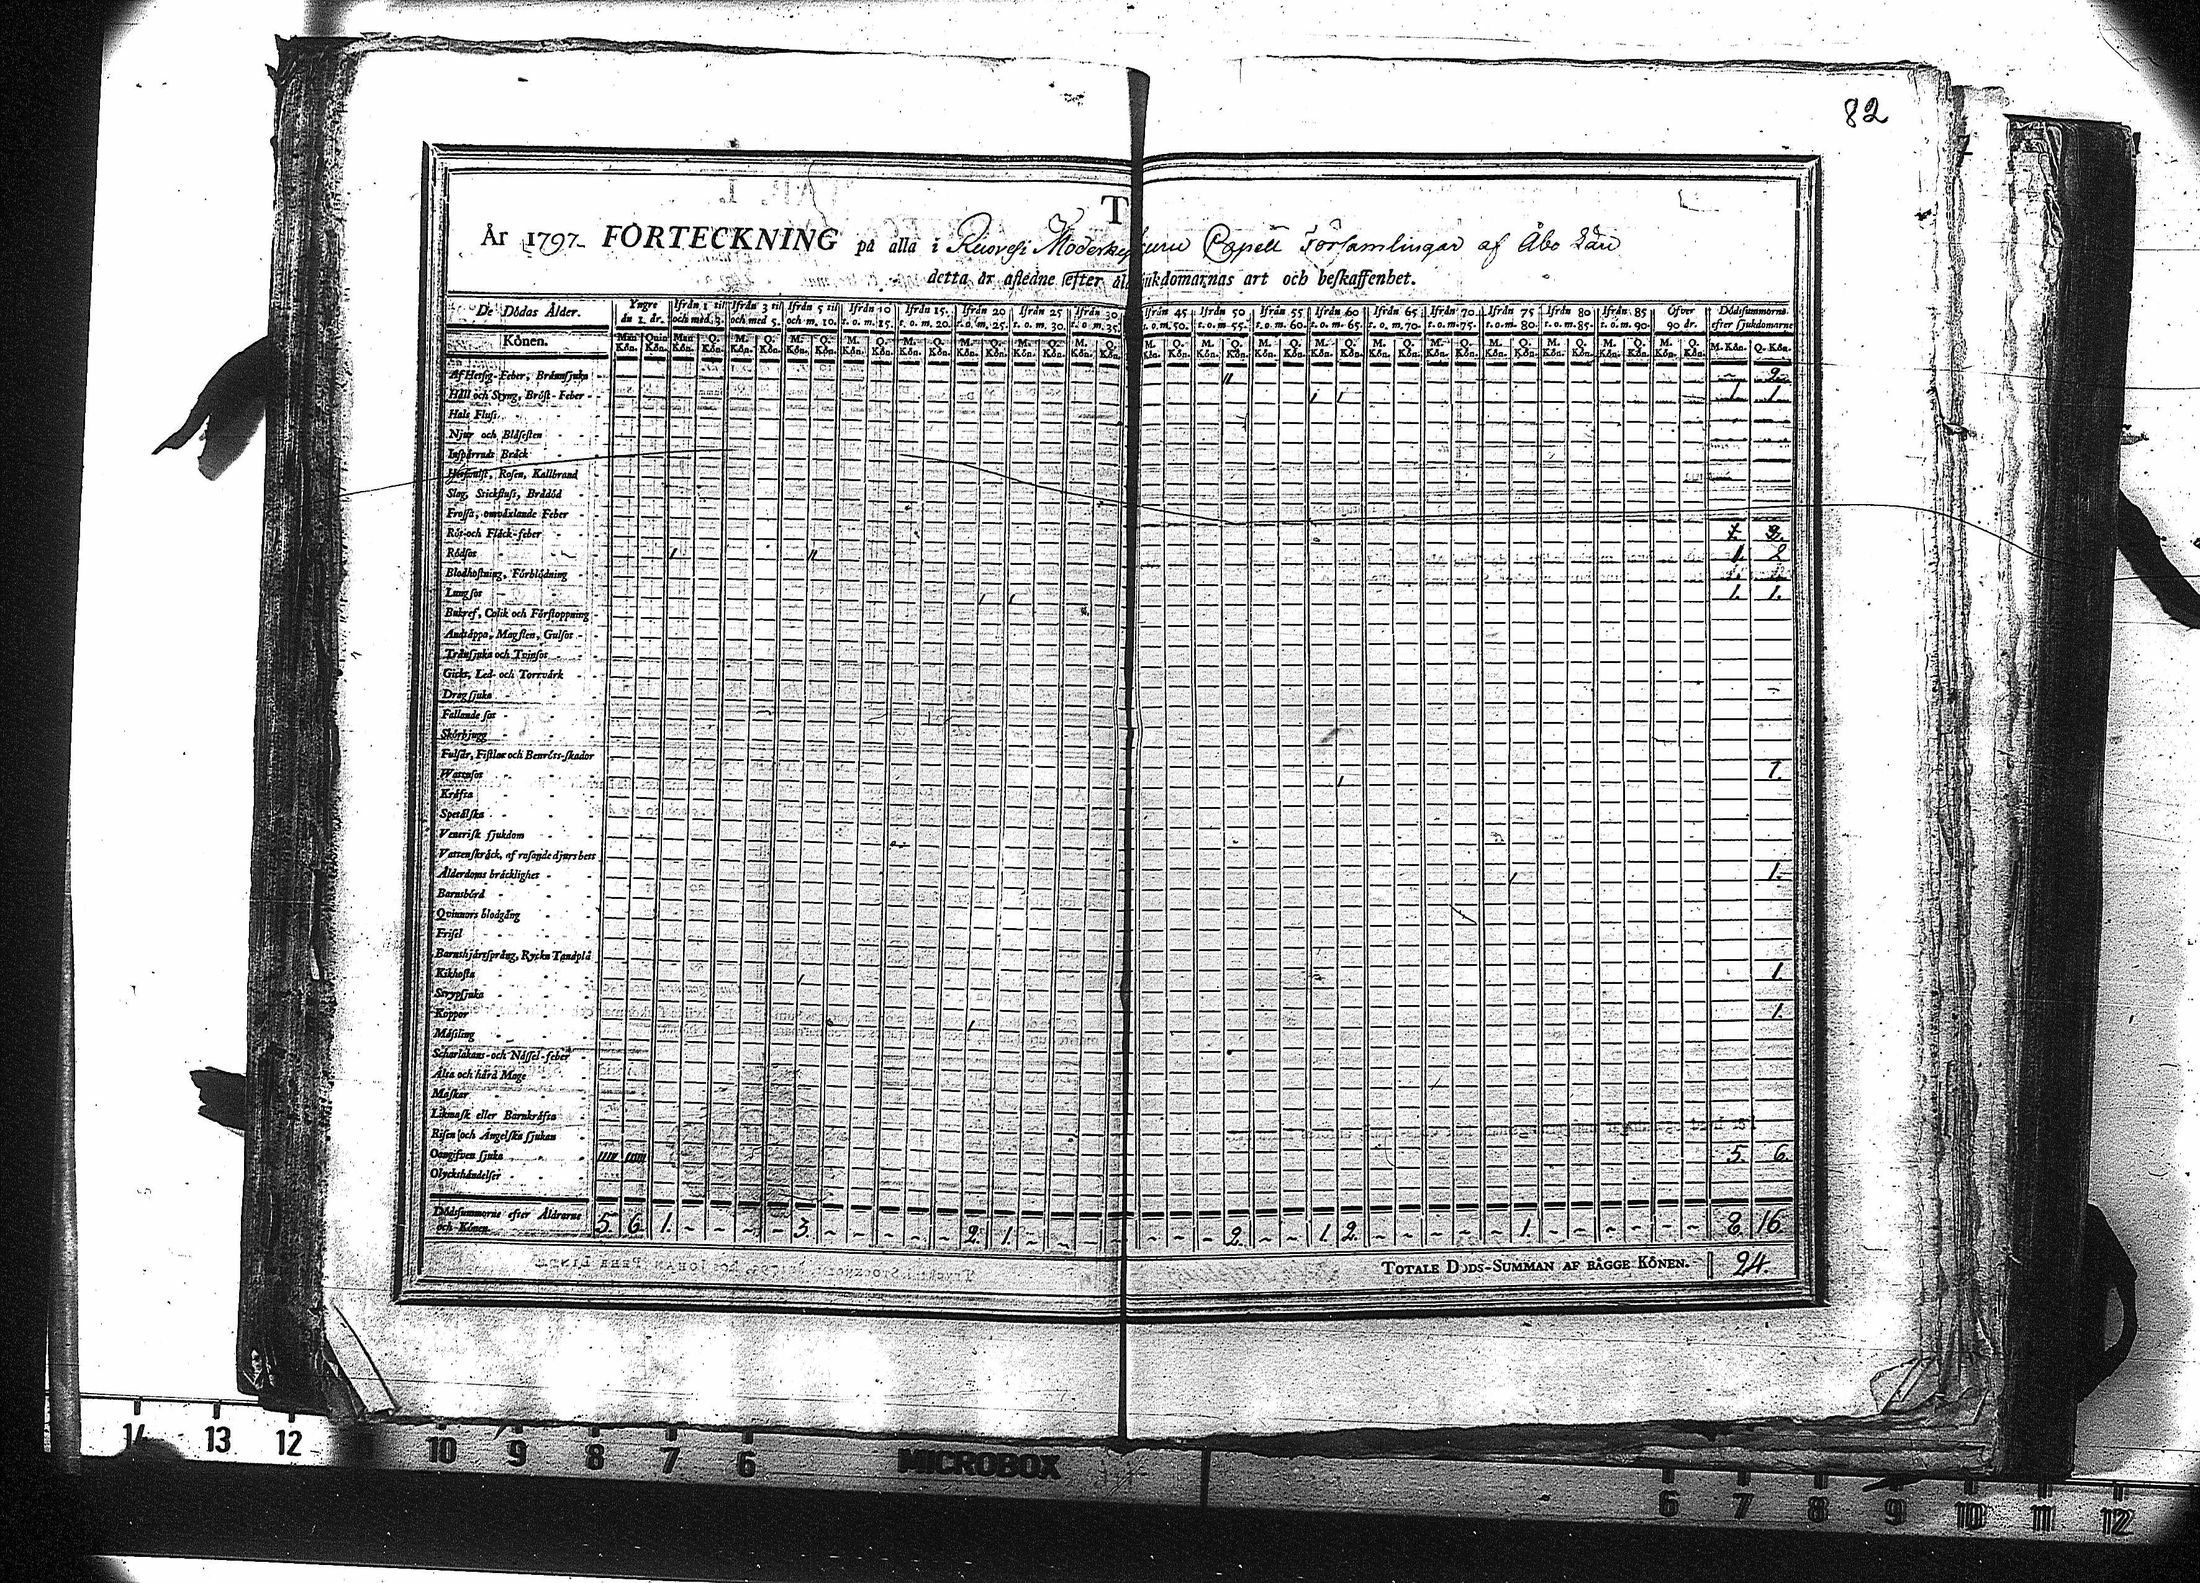 82
År 1797 FÖRTECKNING på alla i Ruovesi Moderkyrkuru Capell Församlingar af Åbo Län
detta år afledne efter ål sjukdomarnas art och beskaffenhet.
De Dödas Ålder. Yngre än 1. år. Ifrån 1 til och med 3. Ifrån 3 til och med 5. Ifrån 5 til och m. 10. Ifrån 10 t. o. m. 15. Ifrån 15. t. o. m. 20. Ifrån 20 t. o. m. 25. Ifrån 25 t. o. m. 30. Ifrån 30 t. o. m. 35. Ifrån 45 t. o. m. 50. Ifrån 50 t. o. m. 55. Ifrån 55 t. o. m. 60. Ifrån 60 t. o. m. 65. Ifrån 65 t. o. m. 70. Ifrån 70 t. o. m. 75. Ifrån 75 t. o. m. 80. Ifrån 80 t. o. m. 85. Ifrån 85 t. o. m. 90. Öfver 90 år. Dödssummorne efter sjukdomarne
Könen. Man Kön. Quin Kön. Man Kön. Q. Kön. M. Kön. Q. Kön. M. Kön. Q. Kön.
Af Hetsig-Feber, Brännsjuka 11 2
Håll och Styng, Bröst-Feber 1 1 1 1
Hals Flusi
Njur och Blåsesten
Inspärradt Bråck
Rosen, Kallbrand
Slag, Stickflusi, Brådöd
Frossa, omväxlande Feber
Röt-och Fläck-feber
Rödsot 1 11 1. 2
Blodhostning, Förblödning
Lungsot 1 1 1. 1.
Bukref, Colik och Förstoppning
Andtäppa, Magsten, Gulsot
Trånsjuka och Tvinsot
Gickt, Led- och Torrvärk
Dragsjuka
Fallande sot
Skörbjugg
Fulsår, Fistlar och Benröts-skador
Wattusot 1 1.
Kräfta
Spetälska
Venerisk sjukdom
Vattenskräck, af rasande djurs bett
Ålderdoms bräcklighet 1 1.
Barnsbörd
Qvinnors blodgång
Frisel
Barnshjärtsprång, Ryck, Tandplå
Kikhosta 1 1
Strypsjuka
Koppor 1 1.
Mässling
Scharlakans-och Nässel-feber
Älta och hård Mage
Maskar
Likmask eller Barnkräfta
Risen och Ängelska sjukan
Oangifven sjuka 11111 111111 5. 6
Olyckshändelser
Dödssummorne efter Åldrarne och Könen 5. 6 1. 3. 2. 1. 2. 1 2. 1. 8. 16
TOTALE DÖDS-SUMMAN AF BÄGGE KÖNEN. 24.
14 13 12 10 9 8 7 6 MICROBOX 6 7 8 9 10 11 12